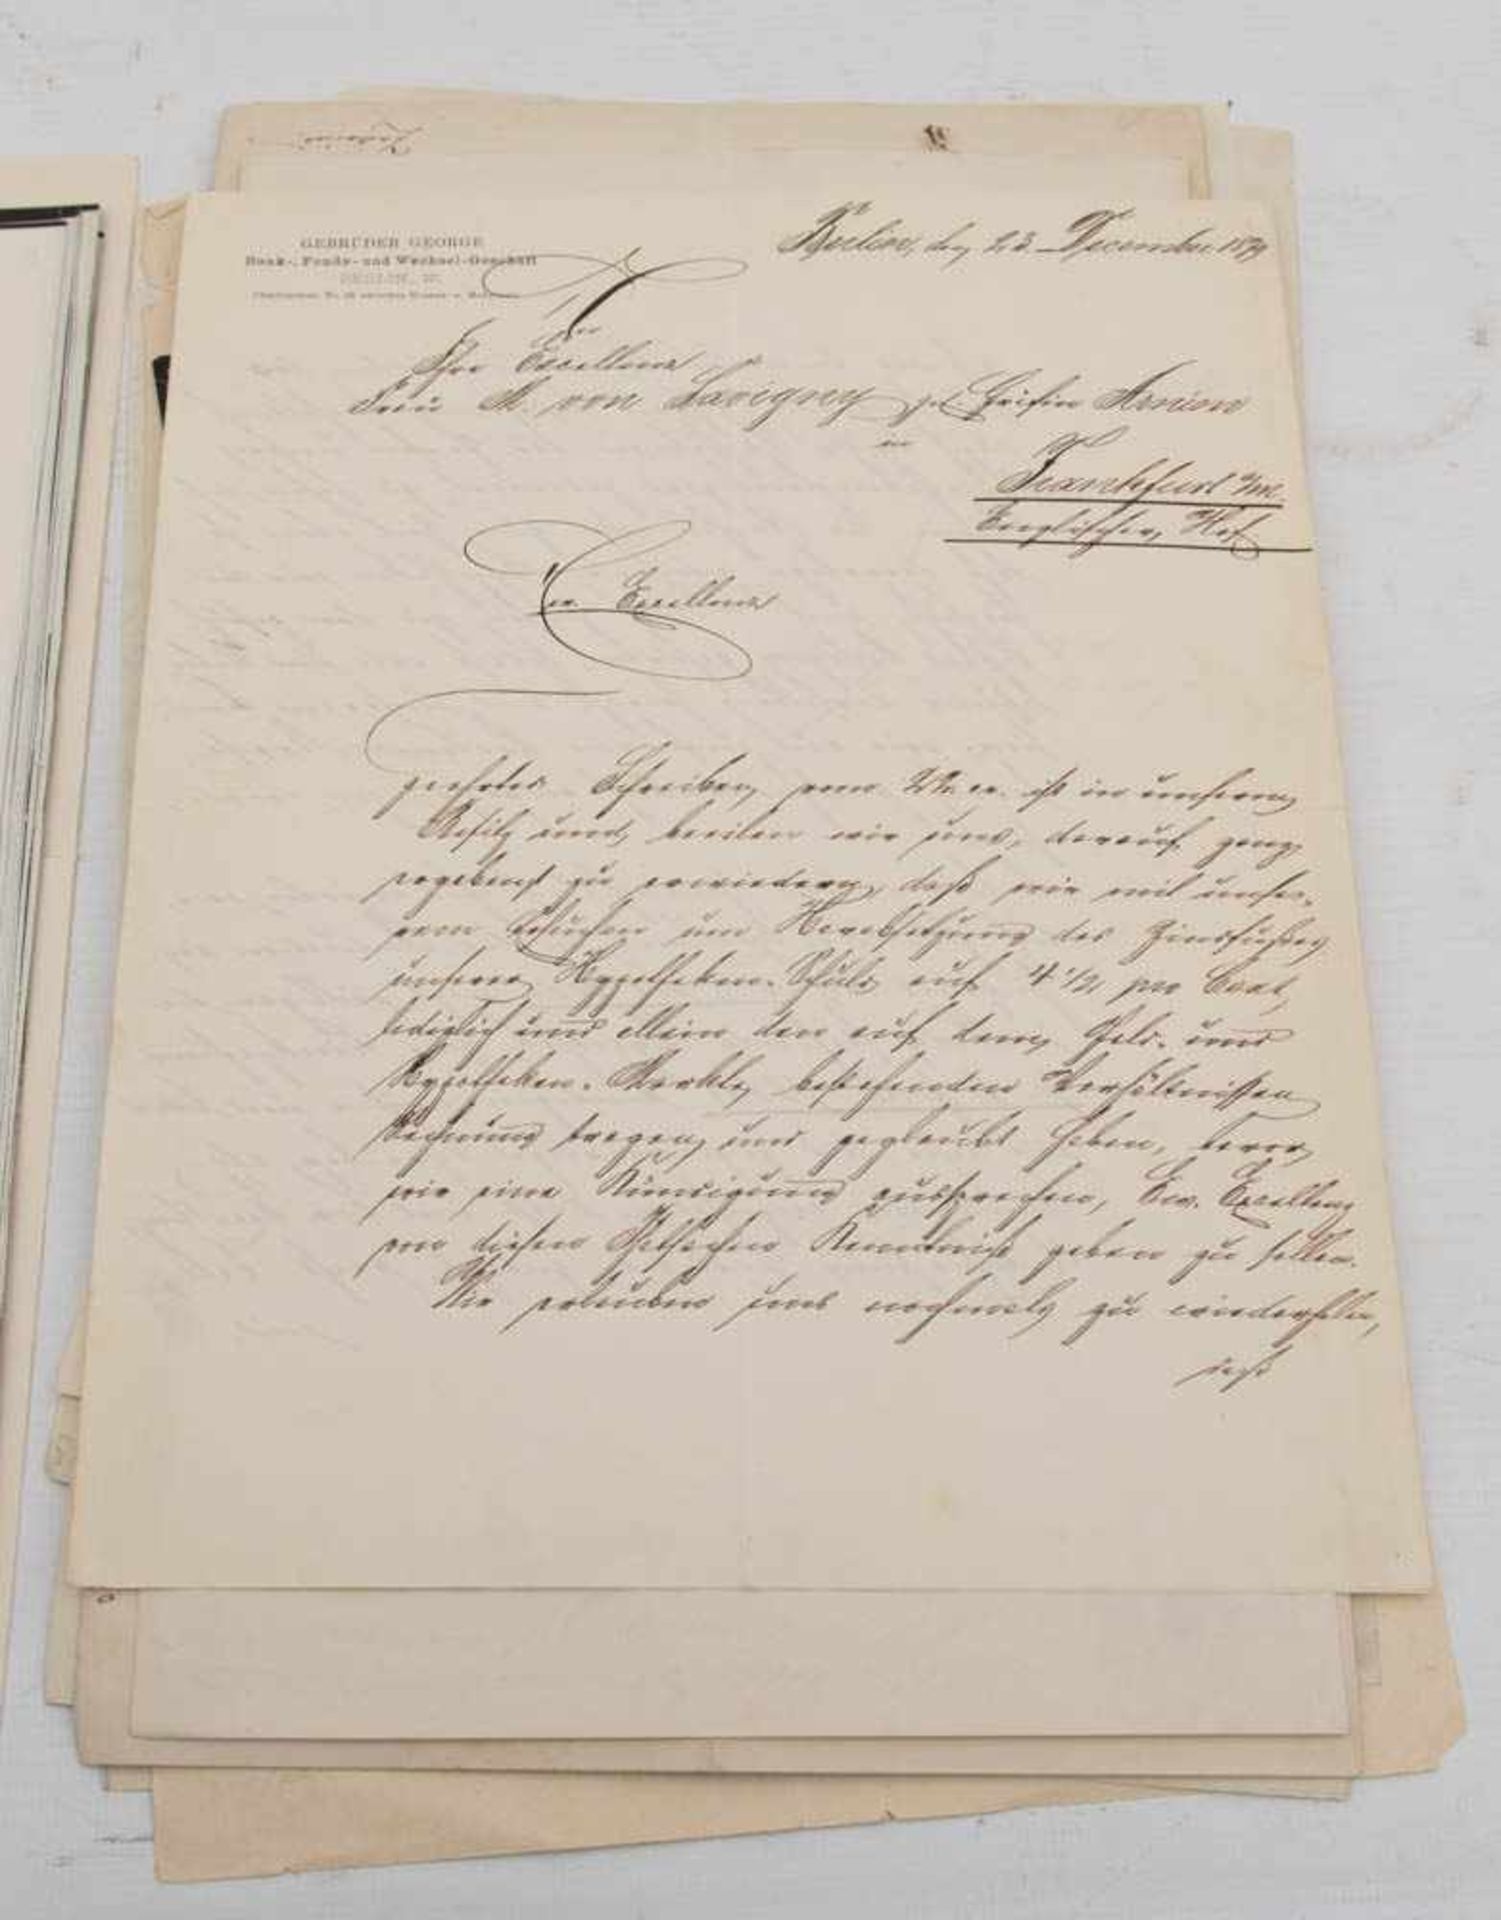 GEBRÜDER GEORGE
Bank-, Fonds- und Wechsel-Geschäft
BERLIN, W.
Berlin, den 23. December 1879
Ihre Excellenz
Frau M. von Savigny geb. Gräfin Arnim
in
Frankfurt a/M.
Englischer Hof
Ew. Excellenz
geehrtes Schreiben vom 22. cr. ist in unserem
Besitz und beeilen wir uns, darauf ganz
ergebenst zu erwiedern, daß wir mit unse-
rem Ersuchen um Herabsetzung des Zinsfußes
unserer Hypotheken-Schuld auf 4 1/2 pro Cent,
lediglich und allein den auf dem Geld- und
Hypotheken-Markte bestehenden Verhältnissen
Rechnung tragen und geglaubt haben, bevor
wir eine Kündigung aussprechen, Ew. Excellenz
von diesen Kenntniß geben zu sollen.
Wir erlauben uns nochmals zu wiederholen,
daß